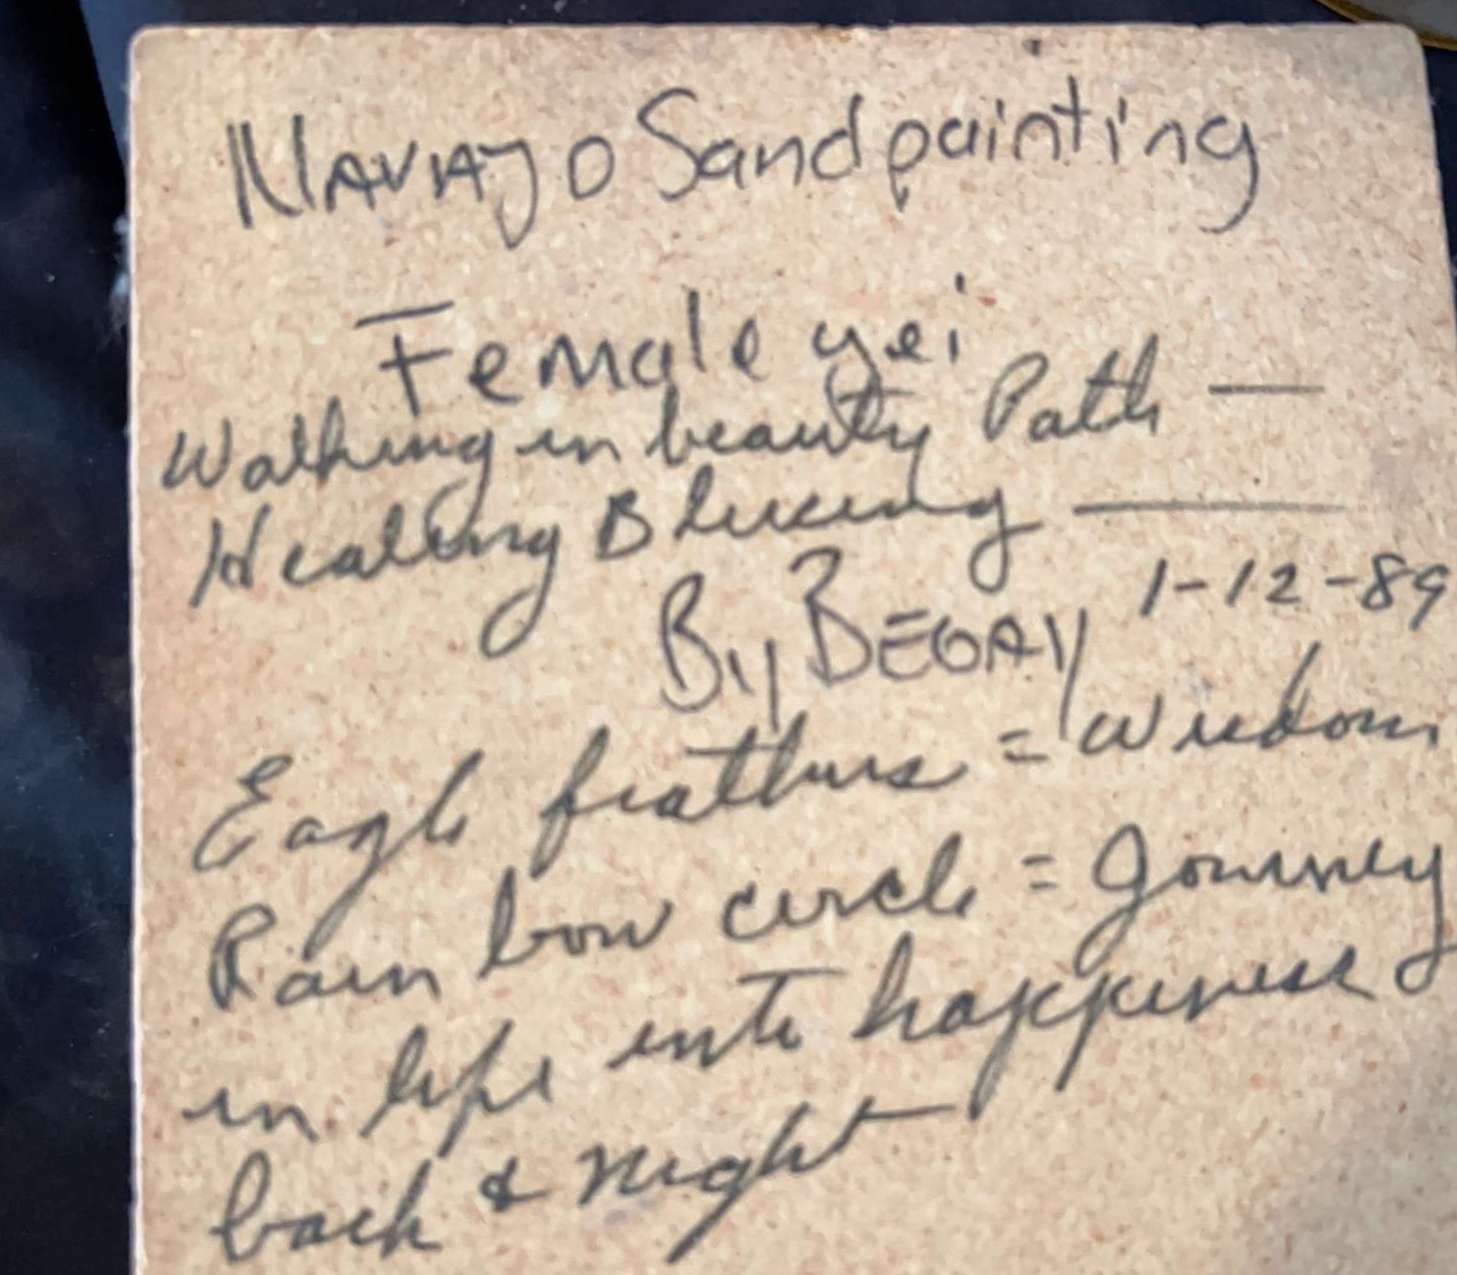 NAVAJO Sandpainting
Female yei
Walking in beauty Path —
Healing Blessing —
1-12-89
By BEGAY
Eagle feathers = wisdom
Rain bow circle = Journey
in life into happiness
back & night